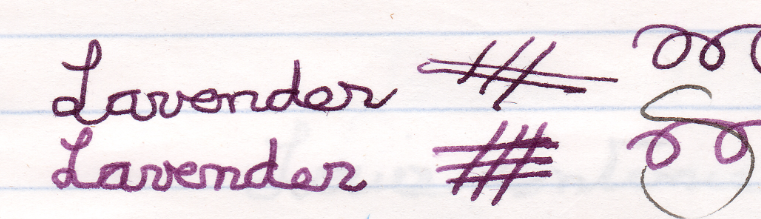 Lavender
Lavender